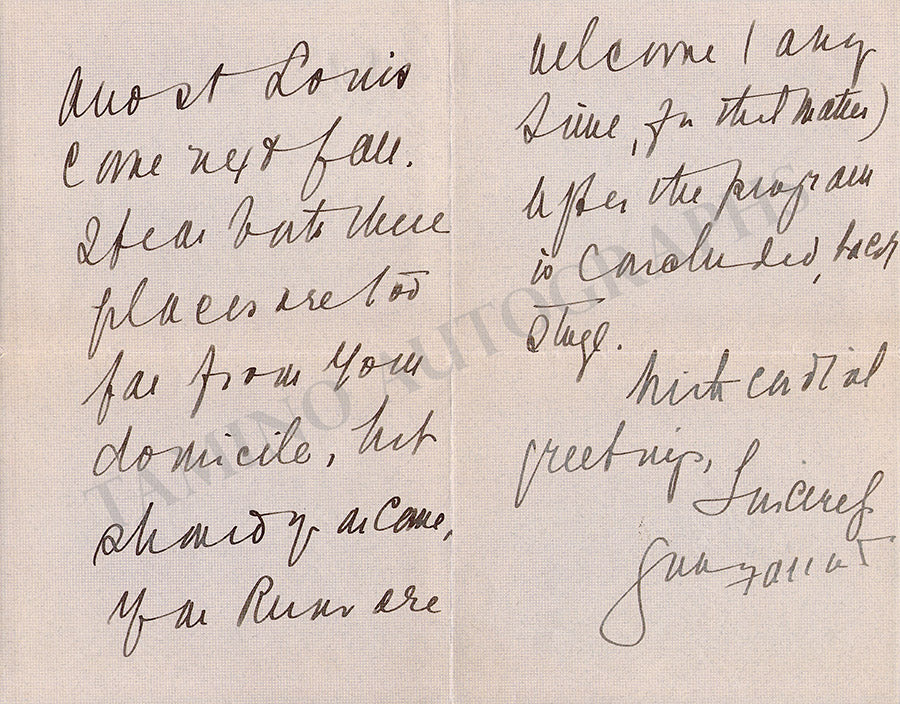 St Louis
Come next fall.
I fear both these
places are too
far from your
domicile, but
should you come,
you are
welcome (any
time, for that matter)
after the program
is concluded, back
stage.
With cordial
greetings,
Sincerely
TAMINO AUTOGRAPHS